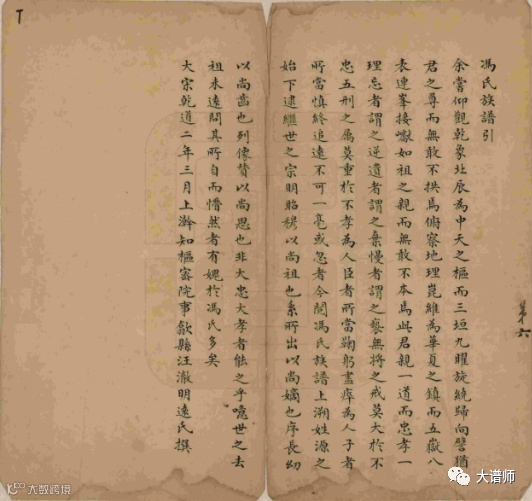 馮氏族譜引
余嘗仰觀乾象北辰為中天之樞而三垣九曜旋繞歸向譬猶
君之尊而無敢不拱焉俯察地理崑維為華夏之鎮而五嶽八
表連峯接巘如祖之親而無敢不本焉此君親一道而忠孝一
理忘者謂之逆遺者謂之棄慢者謂之褻無將之戒莫大於不
忠五刑之屬莫重於不孝為人臣者所當鞠躬盡瘁為人子者
所當慎終追遠不可一毫或忽者今閱馮氏族譜上溯姓源之
始下逮繼世之宗明昭穆以尚祖也系所出以尚嫡也序長幼
以尚齒也列像贊以尚思也非大忠大孝者能之乎噫世之去
祖未遠問其所自而懵然者有媿於馮氏多矣
大宗乾道二年三月上澣知樞密院事歙縣汪澈明遠氏撰
第六
大数跨境
大谱师